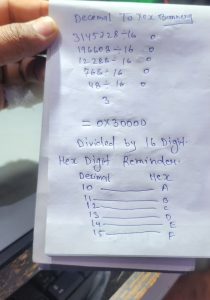 Decimal To Hex
3145728÷16 0
196608÷16 0
12288÷16 0
768÷16 0
48÷16 0
3
= 0X30000
Divided by 16 Digit
Hex Digit Reminder
Decimal Hex
10 A
11 B
12 C
13 D
14 E
15 F